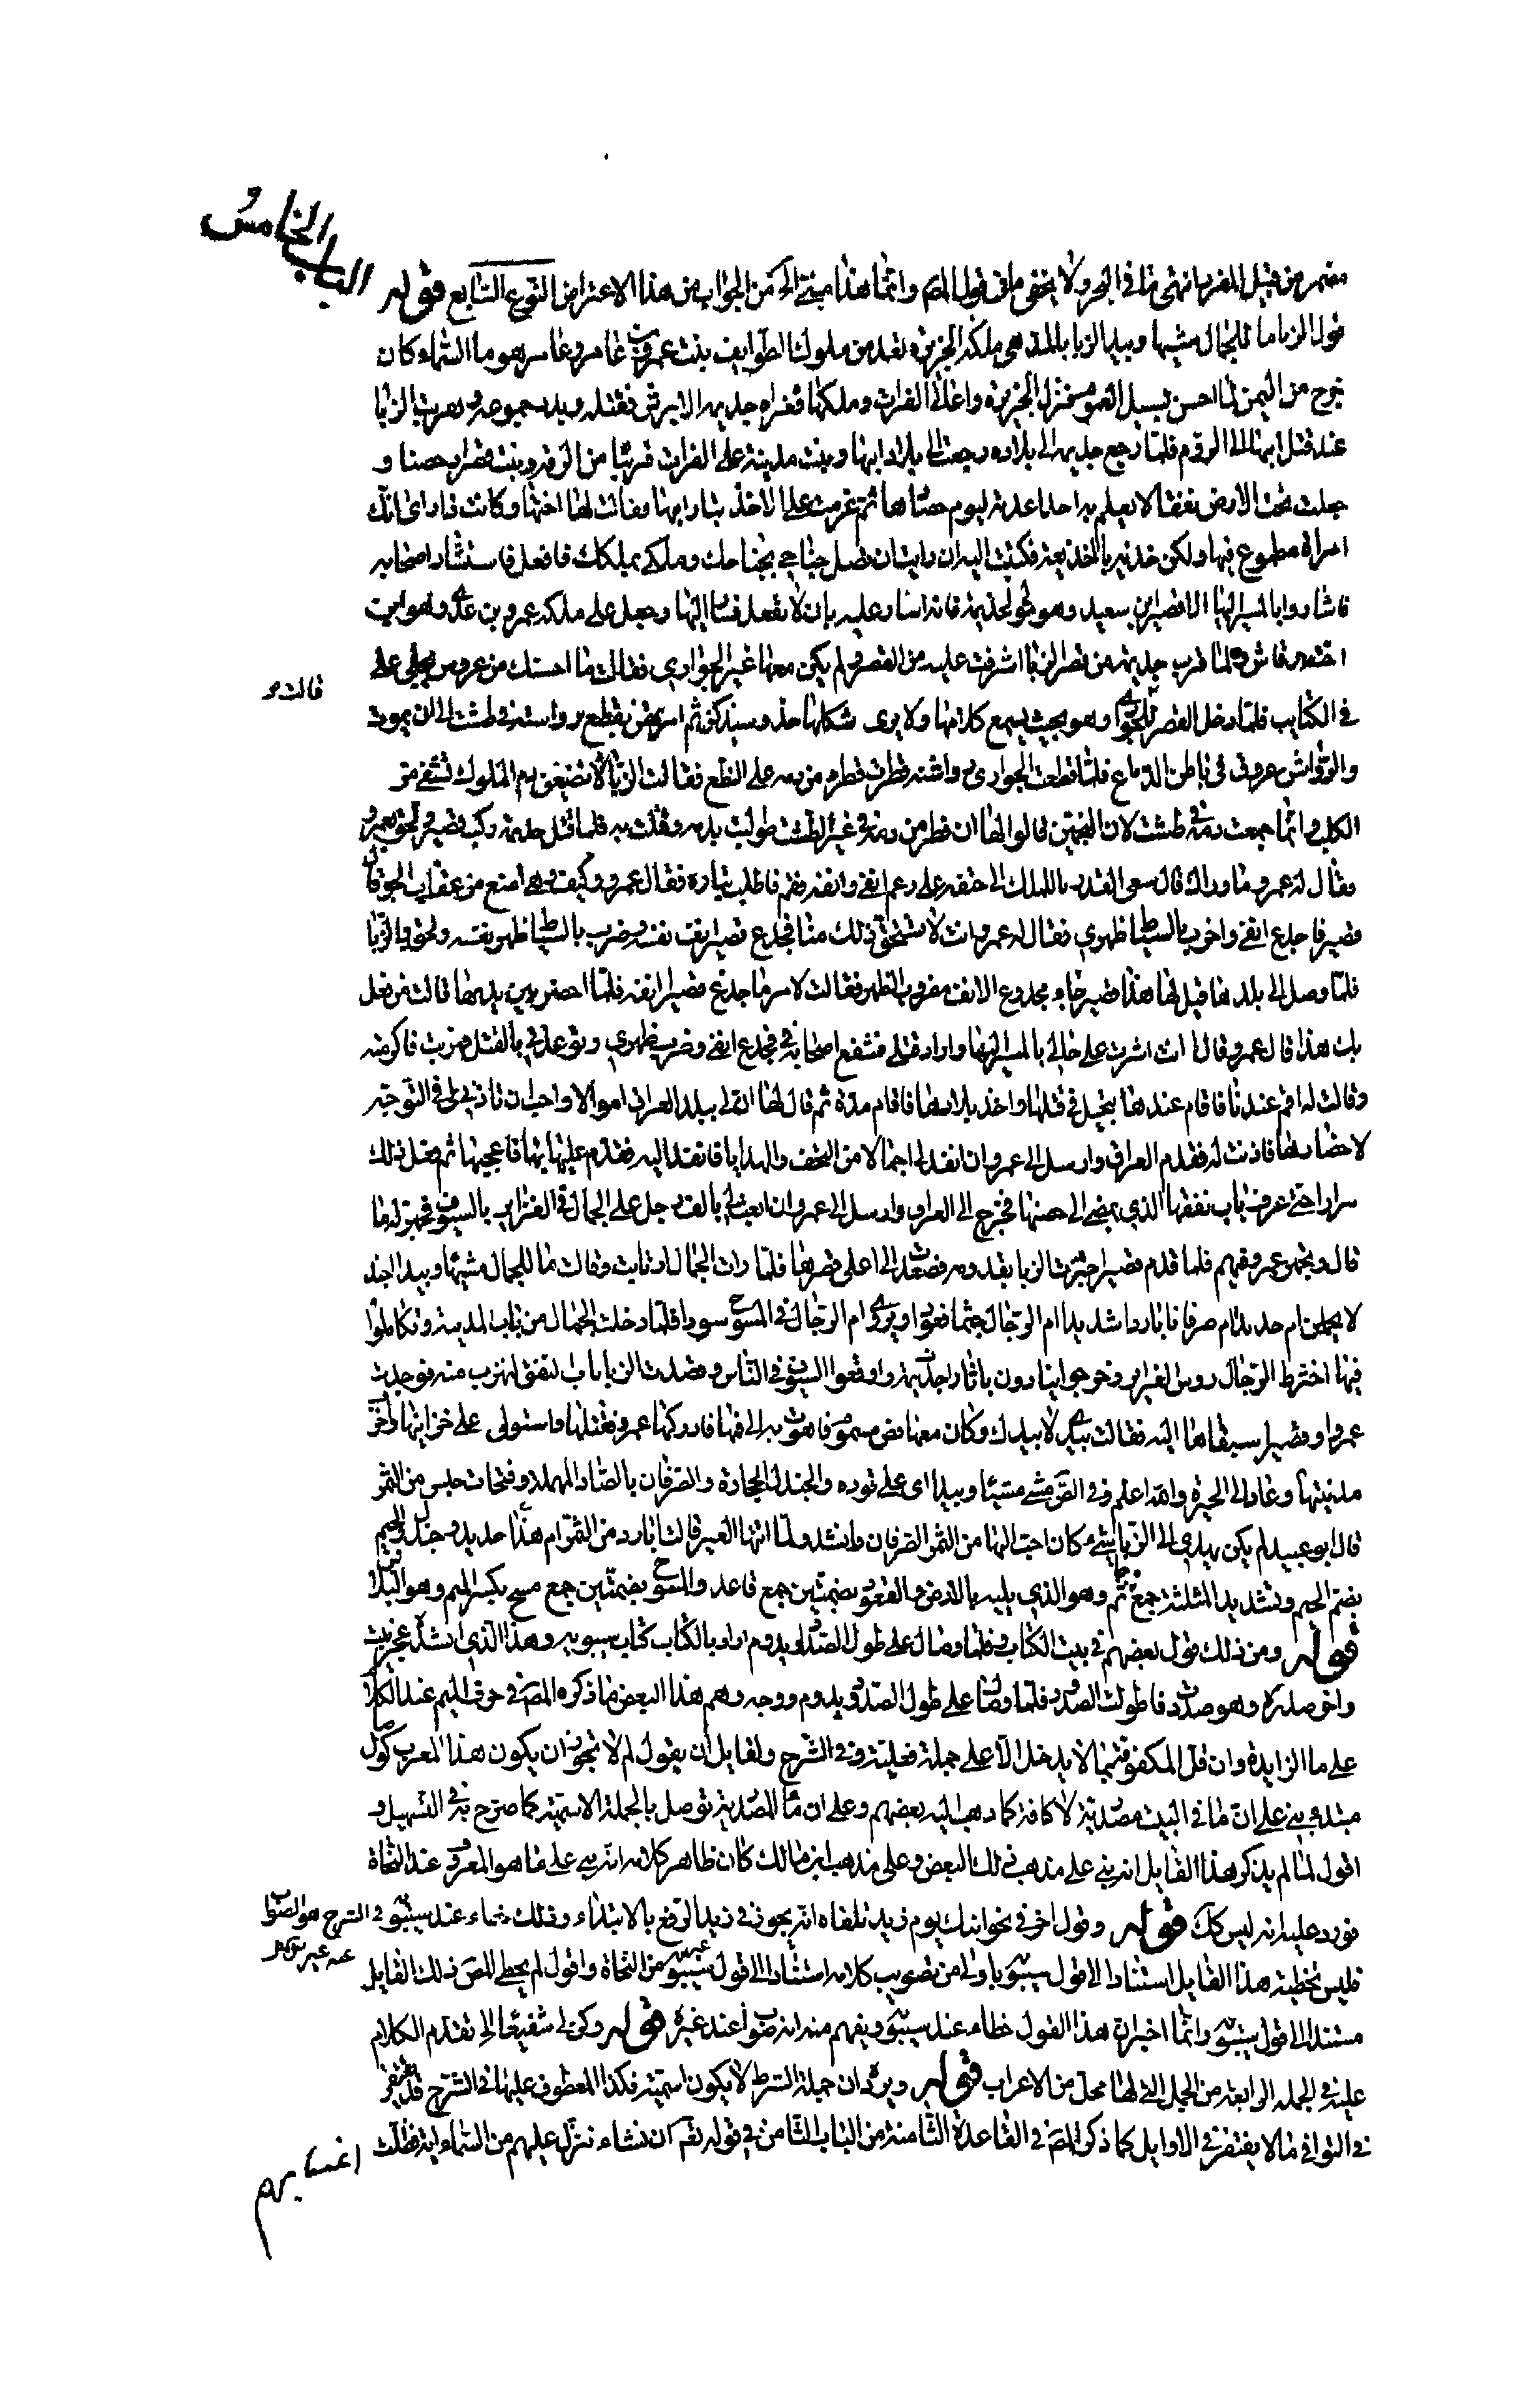 الباب الخامس
من قبيل المفرد انتهى ما في البحر ولا يخفى ما في قول المص وانما هذا مبني الجواب من هذا الاعتراض النوع السابع قوله
قول الزباء ما للجمال مشيها وييدا الزبا بالمد هي ملكة الجزيرة تعد من ملوك الطوايف بنت عمرو بن عامر وعامر هو ماء السماء كان
خرج من اليمن لما احس بسيل العرم فنزل الجزيرة واعالي الفرات وملكها فغزاه جذيمة الابرش فقتله وبدد جموعه وهربت الزبا
عند قتل ابيها الى الروم فلما رجع جذيمة الى بلاده رجعت الى بلاد ابيها وبنت مدينة على الفرات قريبا من الرقة وبنت قصرا حصنا و
جعلت تحت الارض نفقا لا يعلم به احدا عدته ليوم حصارها ثم عزمت على الاخذ بثار ابيها فقالت لها اختها وكانت ذا راى انك
امراة مطموع فيها ولكن خذيه بالخديعة فكتبت اليه ان رايت ان تصل جناحي بجناحك وملكي بملكك فافعل فاستشار اصحابه
فاشاروا بالمسير اليها الا قصير بن سعيد وهو مولى لجذيمة فانه اشار عليه بان لا يفعل فسار اليها وجعل على ملكه عمرو بن عدي وهو ابن
اخته فلما قرب جذيمة من قصر الزبا اشرفت عليه من القصر ولم يكن معها غير الجواري فقالت ما احسنك من عروس يجلى على
قالت
في الكتايب فلما دخل القصر للجواري وهو بحيث يسمع كلامها ولا يرى شكلها خذوا سيدكن ثم امرتهن بقطع رواهشه في طشت الى ان يموت
والرواهش عروق في باطن الذراع فلما قطعت الجواري رواهشه قطرت قطرة من دمه على النطع فقالت الزبا لا تضيعن دم الملوك تشفي من
الكلب وانما جمعت دمه في طشت لان المنجمين قالوا لها ان قطر من دمه في غير الطشت طولبت بدمه وقتلت به فلما قتل جذيمة ركب قصير ولحق بعمرو
فقال له عمرو ما وراك قال سعى القدر بالملك الى حتفه على رغم انفي وانفه فقم فاطلب بثاره فقال عمرو وكيف وهي امنع من عقاب الجو قال
قصير فاجدع انفي واضرب بالسياط ظهري فقال له عمرو انت لا تستحق ذلك منا فجدع قصير انف نفسه وضرب بالسياط ظهر نفسه ولحق بالزبا
فلما وصل الى بلدها قيل لها هذا قصير جاء مجدوع الانف مضروب الظهر فقالت لامر ما جدع قصير انفه فلما احضر بين يديها قالت من فعل
بك هذا قال عمرو قال انت اشرت على خالي بالمسير اليها واراد قتلي فشفع اصحابه في فجدع انفي وضرب ظهري وتوعدني بالقتل فهربت فاكرمته
وقالت له اقم عندنا فاقام عندها يتخيل في قتلها واخذ بلادها فاقام مدة ثم قال لها ان لي ببلد العراق اموالا واحب ان تاذني لي في التوجه
لاحضارها فاذنت له فقدم العراق وارسل الى عمرو ان انفذ لي اجمالا من التحف والهدايا فانفذ اليه فقدم عليها بها فاعجبها ثم فعل ذلك
مرارا حتى عرف باب نفقها الذي يفضي الى حصنها فخرج الى العراق وارسل الى عمرو ان ابعث لي بالف رجل على الجمال في الغراير بالسيوف فجهز له ما
قال وتجهز عمرو فيهم فلما قدم قصير اخبرت الزبا بقدومه فصعدت الى اعلى قصرها فلما رات الجمال ارتابت وقالت ما للجمال مشيها وييدا اجندلا
لا يحملن ام حديدا ام صرفانا باردا شديدا ام الرجال جثما قعودا ويروى ام الرجال في المسوح سودا فلما دخلت الجمال من باب المدينة وتكاملوا
فيها اخترط الرجال روس الغراير وخرجوا ينادون يا ثارات جذيمة واوقعوا السيوف في الناس وقصدت الزبا باب النفق لتهرب منه فوجدت
عمرا وقصيرا سبقاها اليه فقالت بيدي لا بيدك وكان معها فص مسموم فاهوت به الى فيها فادركها عمرو فقتلها واستولى على خزاينها واخرب
مدينتها وعاد الى الحيرة والله اعلم وفي الصحاح مشى مشيا وييدا اى على تودة والجندل الحجارة والصرفان بالصاد المهملة وفتحات جنس من التمر
قال ابو عبيد لم يكن يهدى الى الزبا شيء كان احب اليها من التمر الصرفان وانشد ولما اتتها العير قالت ابارد من التمر ام هذا حديد وجندل والجثم
بضم الجيم وتشديد المثلثة جمع جاثم وهو الذي يلبد بالارض والقعود بضمتين جمع قاعد والمسوح بضمتين جمع مسح بكسر الميم وهو البلاس
قوله ومن ذلك قول بعضهم في بيت الكتاب وقلما وصال على طول الصدود يدوم اراد بالكتاب كتاب سيبويه وهذا الذي انشده عجز بيت
واخر صدره وهو صددت فاطولت الصدود وقلما وصال على طول الصدود يدوم ووجه وهم هذا البعض ما ذكره المص في حرف الميم عند الكلام
على ما الزايدة وان قل المكفوفة بما لا يدخل الا على جملة فعلية وفي الشرح ولقايل ان يقول لم لا يجوز ان يكون هذا المعرب كون
مبتدا بني على ان ما في البيت مصدرية لا كافة كما ذهب اليه بعضهم وعلى ان ما المصدرية توصل بالجملة الاسمية كما صرح به في التسهيل و
اقول لما لم يذكر هذا القايل انه بنى على مذهب ذلك البعض وعلى مذهب ابن مالك كان ظاهر كلامه انه بنى على ما هو المعروف عند النحاة
فورد عليه انه ليس كك قوله وقول اخر في نحو اتيتك يوم زيد تلقاه انه يجوز في زيد الرفع بالابتداء وذلك خطاء عند سيبويه في الشرح هو الصواب
عند غير سيبويه
فليس تخطية هذا القايل استنادا الى قول سيبويه باولى من تصويب كلامه استنادا الى قول غير سيبويه من النحاة واقول لم يخطى المص ذلك القايل
مستندا الى قول سيبويه وانما اخبر ان هذا القول خطاء عند سيبويه ويفهم منه انه صواب عند غيره قوله وكن لي شفيعا الخ تقدم الكلام
عليه في الجملة الرابعة من الجمل التي لها محل من الاعراب قوله ويرده ان جملة الشرط لا يكون اسمية فكذا المعطوف عليها في الشرح قد يغتفر
في الثواني ما لا يغتفر في الاوايل كما ذكره المص في القاعدة الثامنة من الباب الثامن في قوله تعم ان نشاء ننزل عليهم من السماء اية فظلت
اعناقهم